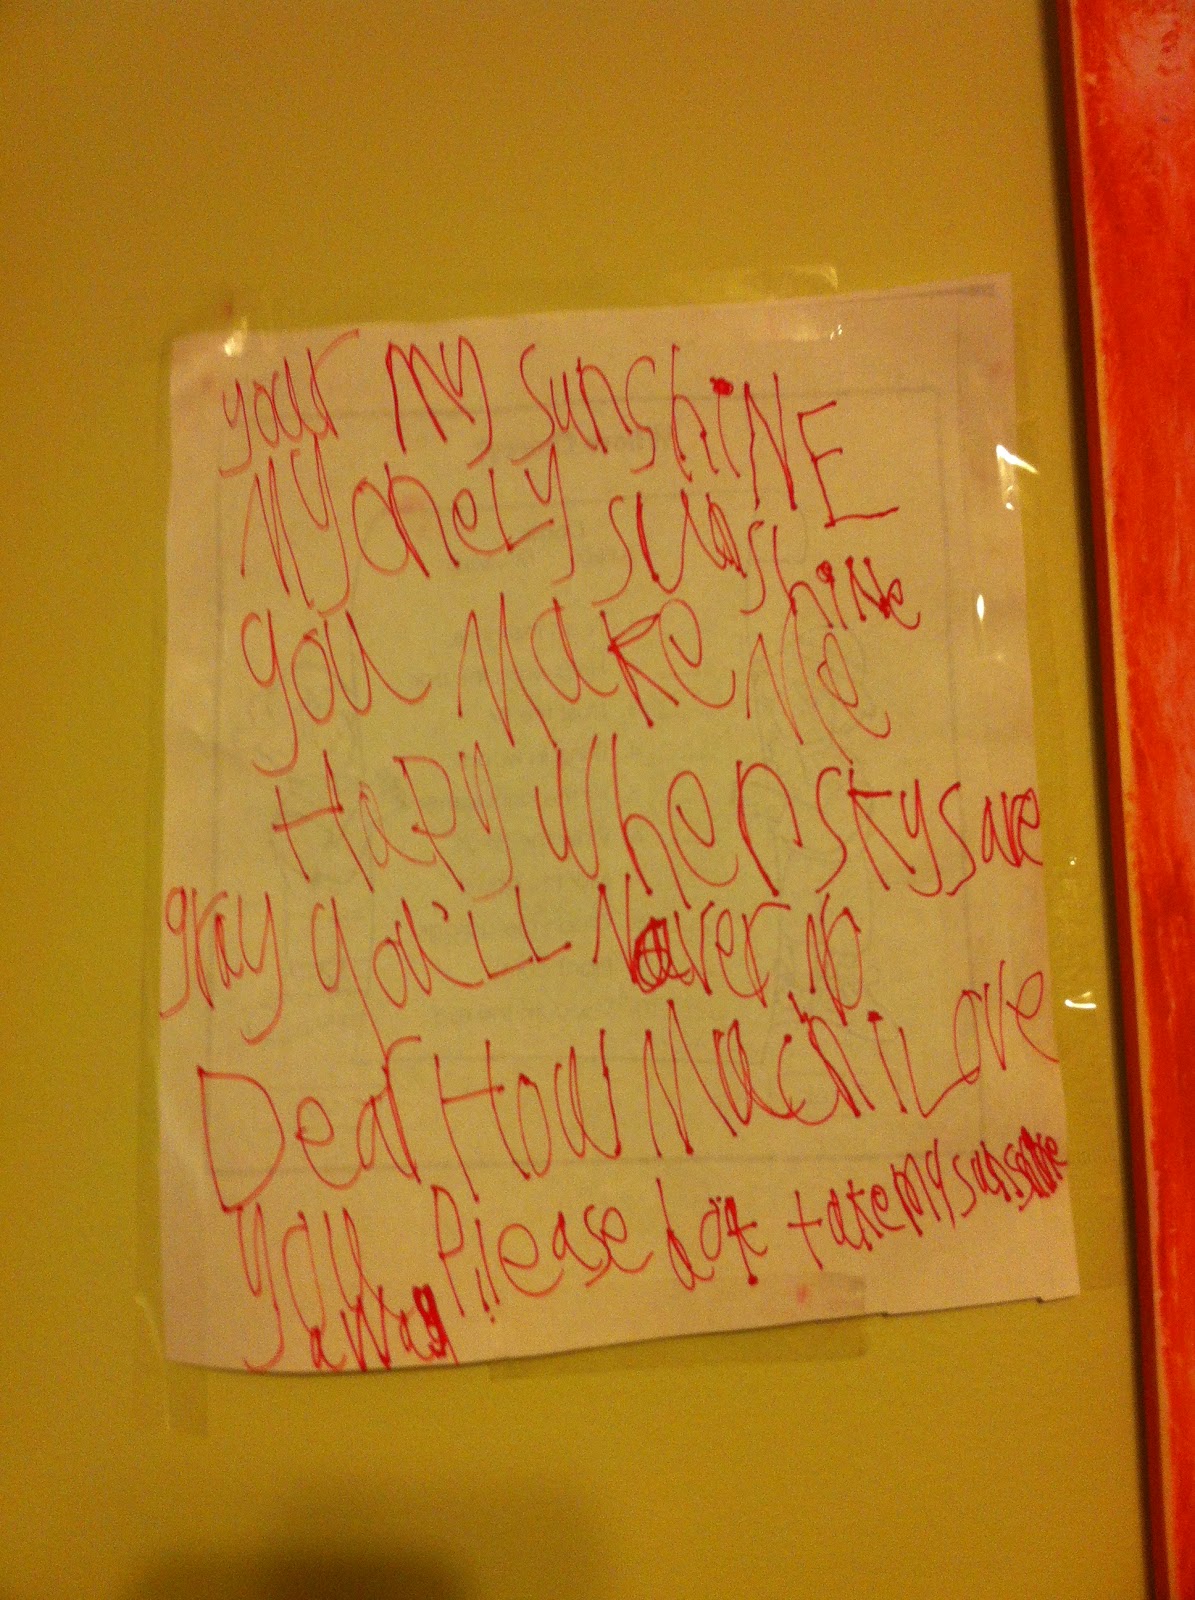 your My sunshiNE
My oneLy sunshiNe
you Make Me
Hapy when skys are
gray you'LL Never No
Dear How Much i Love
you Please dot take My sunshine
away